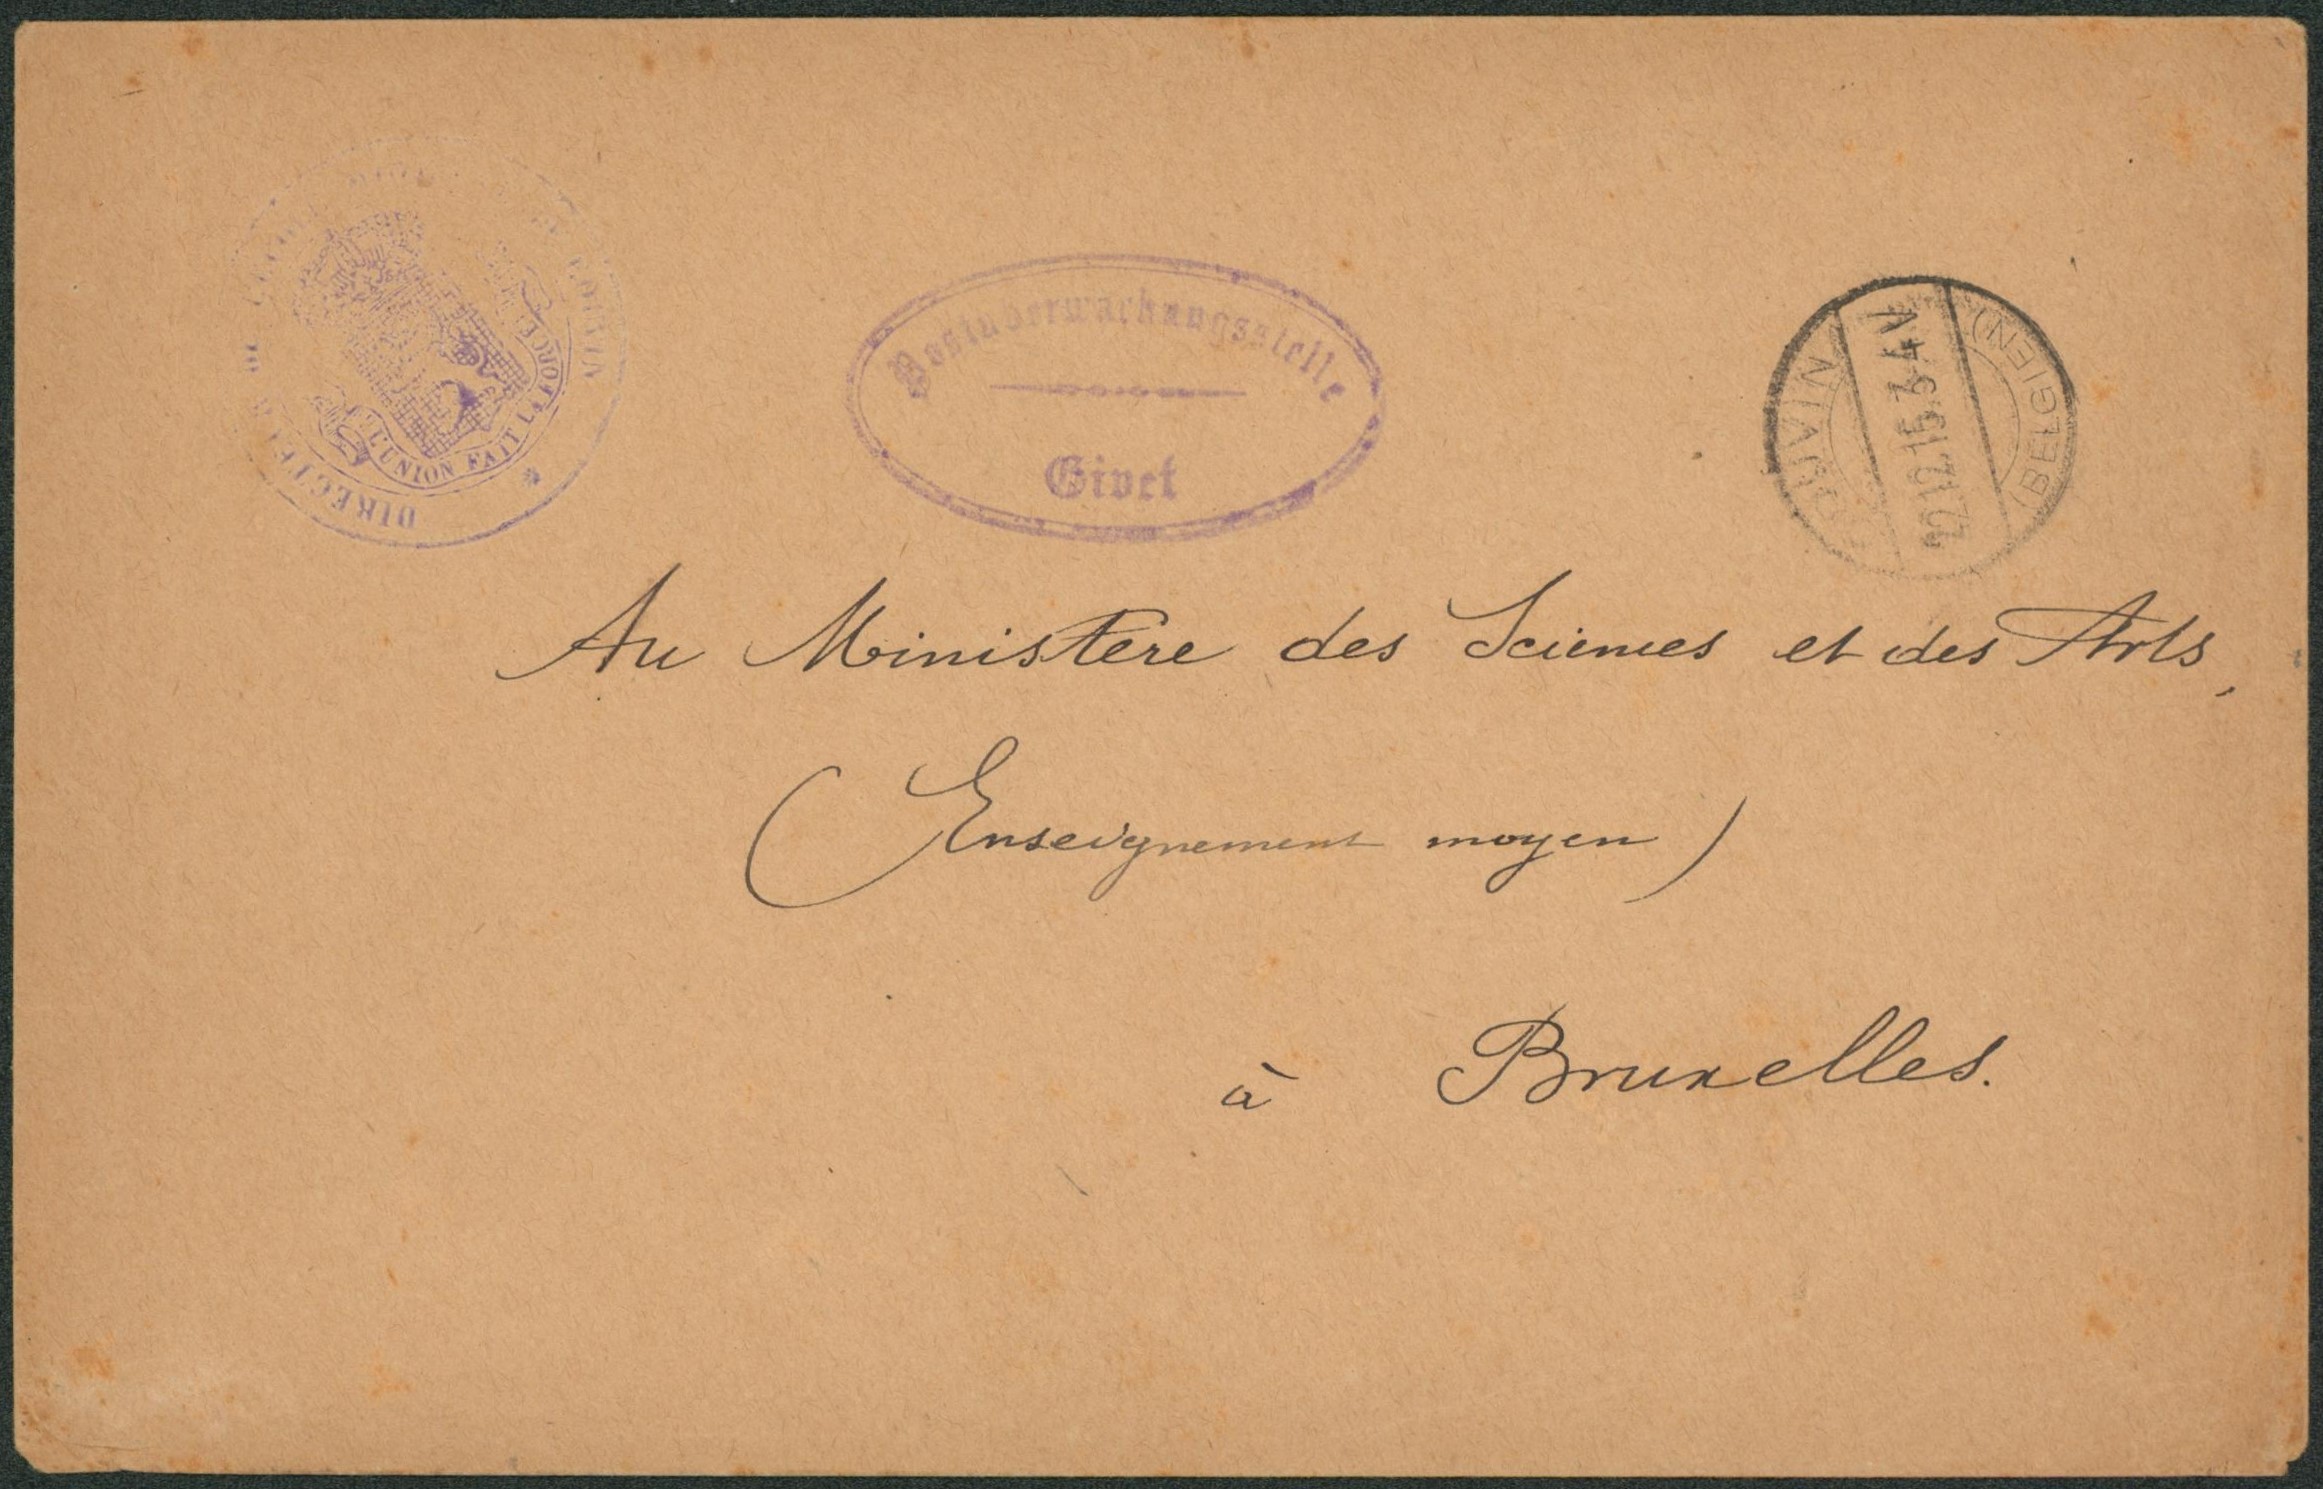 L'UNION FAIT LA FORCE
Postüberwachungsstelle
Givet
COUVIN
22.12.15.3-4N
(BELGIEN)
Au Ministere des Sciences et des Arts,
(Enseignement moyen)
à Bruxelles.